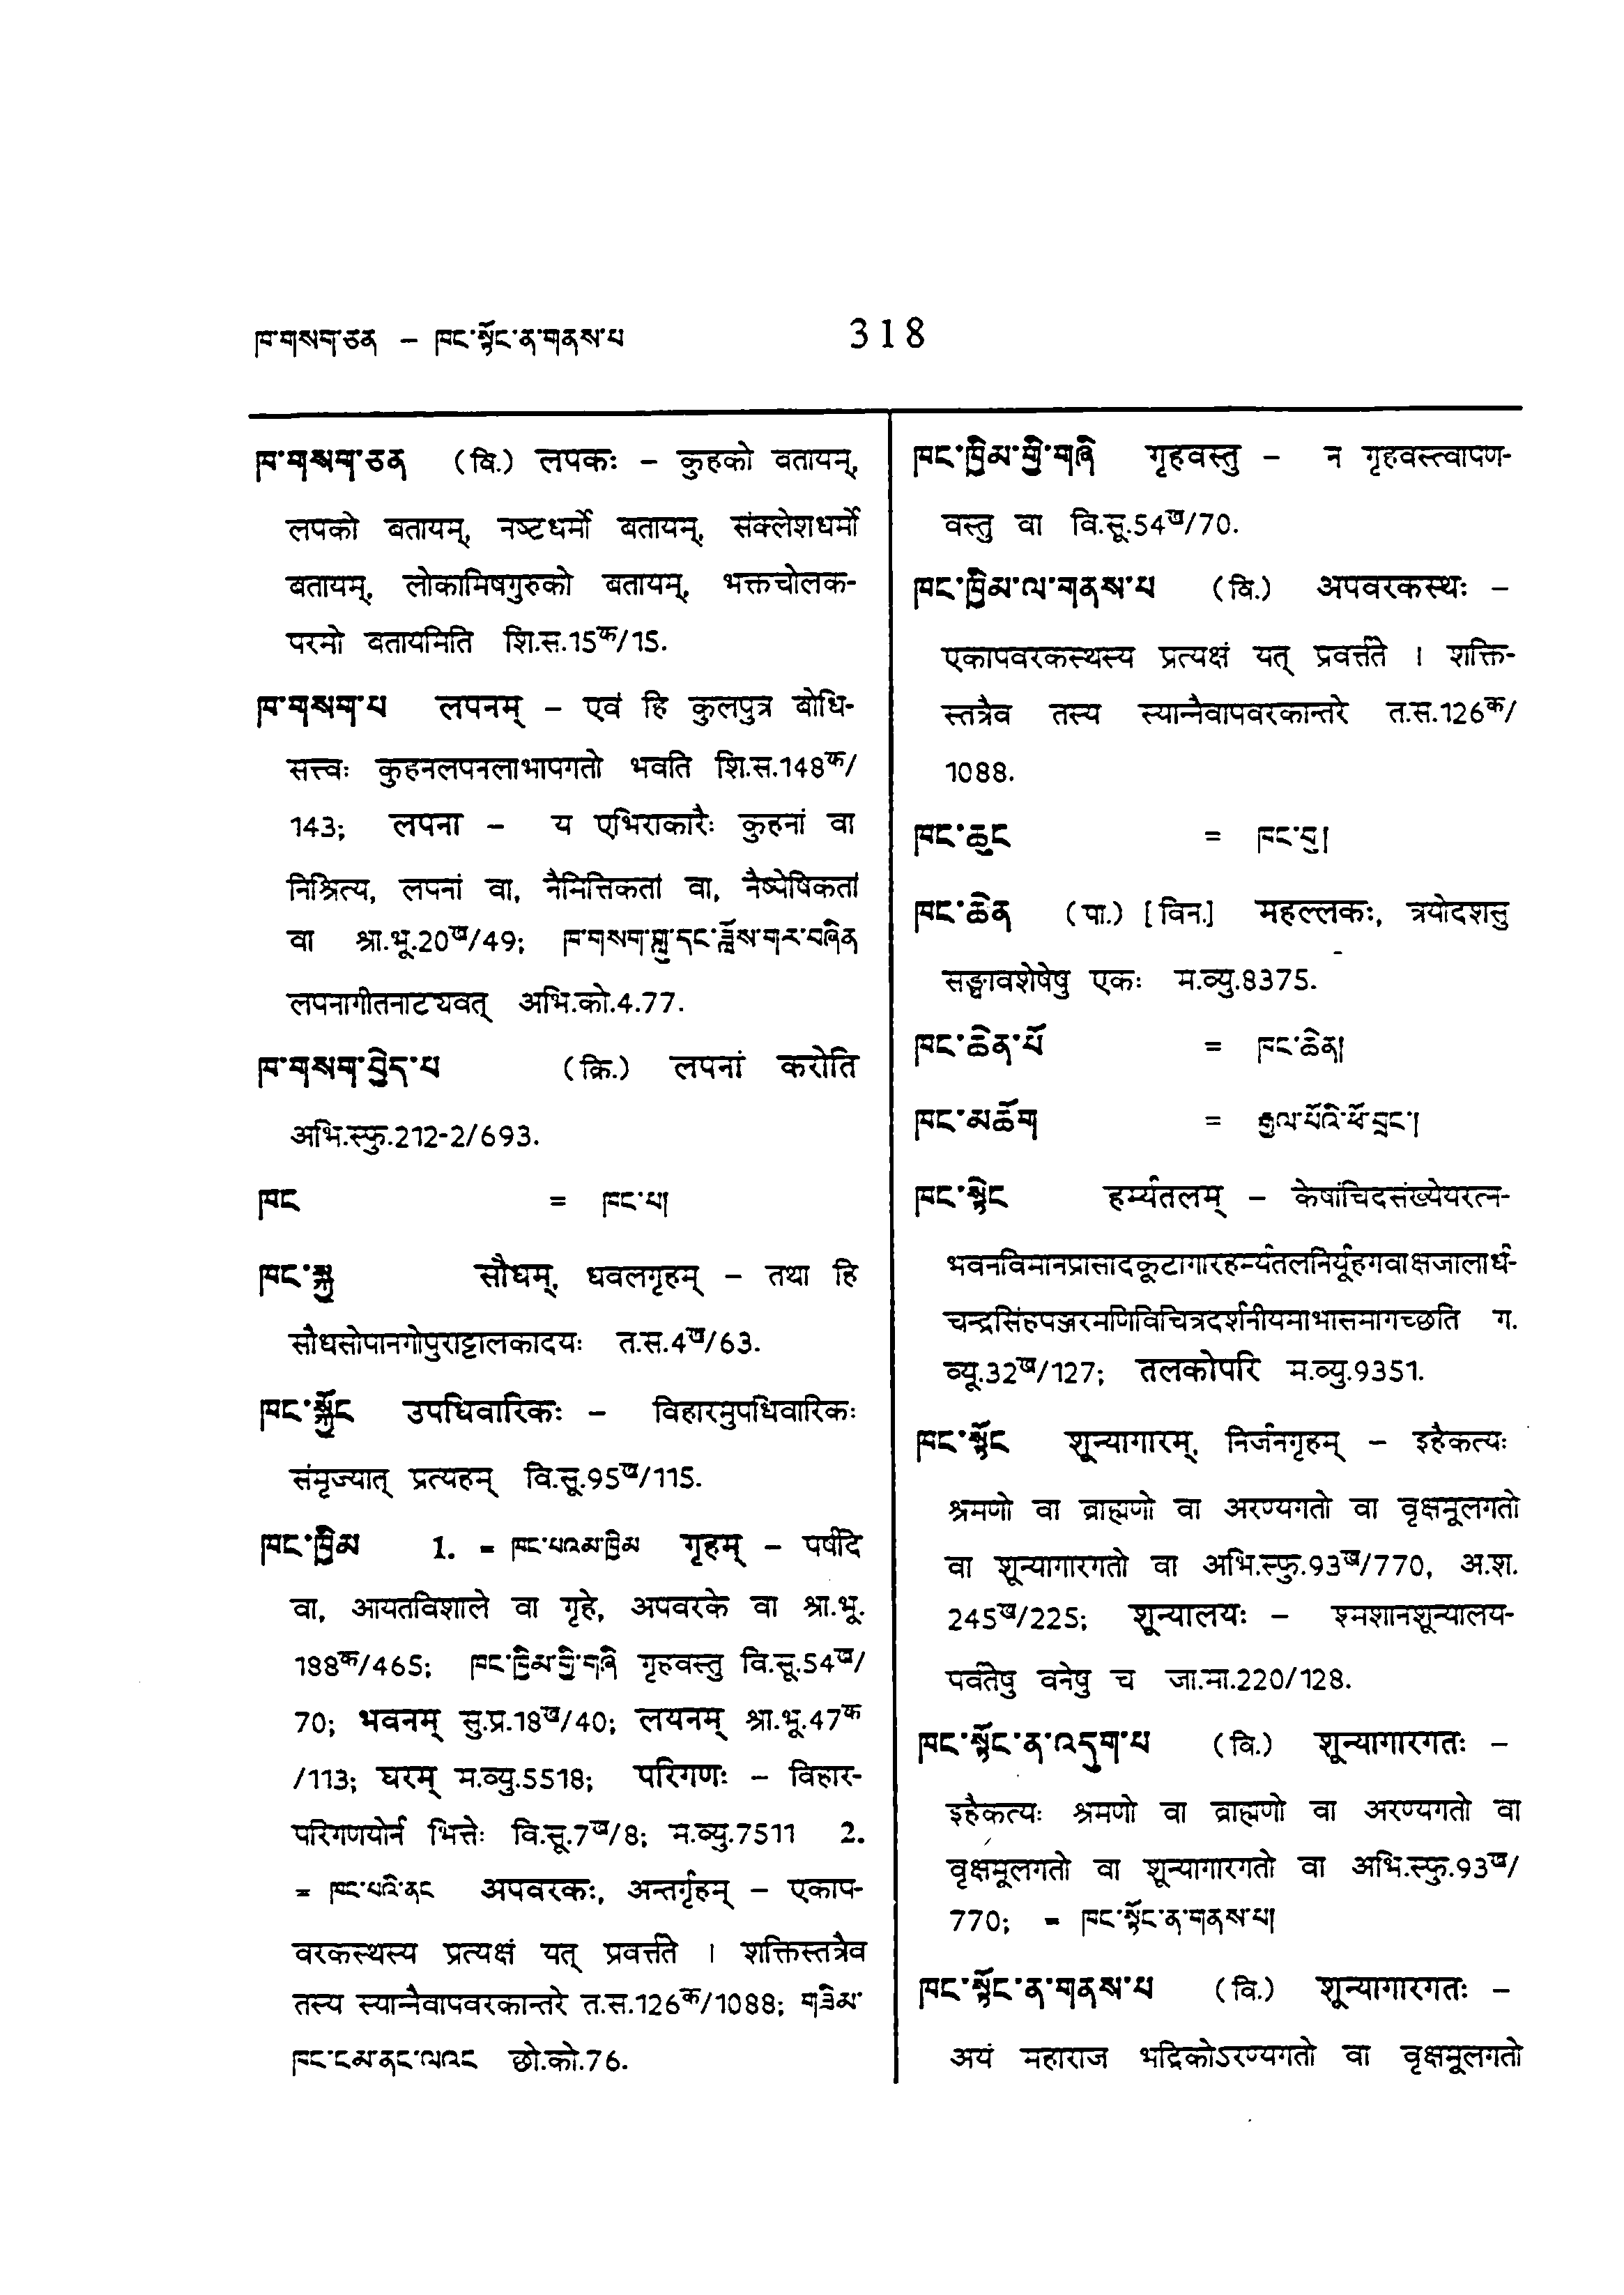 ཁ་གསག་ཅན – ཁང་སྟོང་ན་གནས་པ
318
ཁ་གསག་ཅན (वि.) लपकः – कुहको बतायम्,
लपको बतायम्, नष्टधर्मो बतायम्, संक्लेशधर्मो
बतायम्, लोकामिषगुरुको बतायम्, भक्तचोलक-
परमो बतायमिति शि.स.15क/15.
ཁ་གསག་པ लपनम् – एवं हि कुलपुत्र बोधि-
सत्त्वः कुहनलपनलाभापगतो भवति शि.स.148क/
143; लपना – य एभिराकारैः कुहनां वा
निश्रित्य, लपनां वा, नैमित्तिकतां वा, नैष्पेषिकतां
वा श्रा.भू.20ख/49; ཁ་གསག་གླུ་དང་ཟློས་གར་བཞིན
लपनागीतनाट्यवत् अभि.को.4.77.
ཁ་གསག་བྱེད་པ (क्रि.) लपनां करोति
अभि.स्फु.212-2/693.
ཁང = ཁང་པ།
ཁང་སྐྱ सौधम्, धवलगृहम् – तथा हि
सौधसोपानगोपुराट्टालकादयः त.स.4ख/63.
ཁང་སྐྱོང उपधिवारिकः – विहारमुपधिवारिकः
संमृज्यात् प्रत्यहम् वि.सू.95ख/115.
ཁང་ཁྱིམ 1. = ཁང་པའམ་ཁྱིམ गृहम् – पर्षदि
वा, आयतविशाले वा गृहे, अपवरके वा श्रा.भू.
188क/465; ཁང་ཁྱིམ་གྱི་གཞི गृहवस्तु वि.सू.54ख/
70; भवनम् सु.प्र.18ख/40; लयनम् श्रा.भू.47क
/113; घरम् म.व्यु.5518; परिगणः – विहार-
परिगणयोर्न भित्तेः वि.सू.7ख/8; म.व्यु.7511 2.
= ཁང་པའི་ནང अपवरकः, अन्तर्गृहम् – एकाप-
वरकस्थस्य प्रत्यक्षं यत् प्रवर्त्तते । शक्तिस्तत्रैव
तस्य स्यान्नैवापवरकान्तरे त.स.126क/1088; གཟིམ་
ཁང་ངམ་ནང་ལའང छो.को.76.
ཁང་ཁྱིམ་གྱི་གཞི गृहवस्तु – न गृहवस्त्वापण-
वस्तु वा वि.सू.54ख/70.
ཁང་ཁྱིམ་ལ་གནས་པ (वि.) अपवरकस्थः –
एकापवरकस्थस्य प्रत्यक्षं यत् प्रवर्त्तते । शक्ति-
स्तत्रैव तस्य स्यान्नैवापवरकान्तरे त.स.126क/
1088.
ཁང་ཆུང = ཁང་བུ།
ཁང་ཆེན (पा.) [विन.] महल्लकः, त्रयोदशसु
सङ्घावशेषेषु एकः म.व्यु.8375.
ཁང་ཆེན་པོ = ཁང་ཆེན།
ཁང་མཆོག = རྒྱལ་པོའི་ཕོ་བྲང་།
ཁང་སྟེང हर्म्यतलम् – केषांचिदसंख्येयरत्न-
भवनविमानप्रासादकूटागारहर्म्यतलनिर्यूहगवाक्षजालार्ध-
चन्द्रसिंहपञ्जरमणिविचित्रदर्शनीयमाभासमागच्छति ग.
व्यू.32ख/127; तलकोपरि म.व्यु.9351.
ཁང་སྟོང शून्यागारम्, निर्जनगृहम् – इहैकत्यः
श्रमणो वा ब्राह्मणो वा अरण्यगतो वा वृक्षमूलगतो
वा शून्यागारगतो वा अभि.स्फु.93ख/770, अ.श.
245ख/225; शून्यालयः – श्मशानशून्यालय-
पर्वतेषु वनेषु च जा.मा.220/128.
ཁང་སྟོང་ན་འདུག་པ (वि.) शून्यागारगतः –
इहैकत्यः श्रमणो वा ब्राह्मणो वा अरण्यगतो वा
वृक्षमूलगतो वा शून्यागारगतो वा अभि.स्फु.93ख/
770; = ཁང་སྟོང་ན་གནས་པ།
ཁང་སྟོང་ན་གནས་པ (वि.) शून्यागारगतः –
अयं महाराज भद्रिकोऽरण्यगतो वा वृक्षमूलगतो